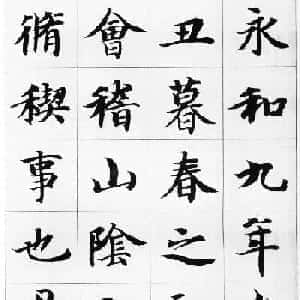 永和九年
丑暮春之
會稽山陰
脩稧事也